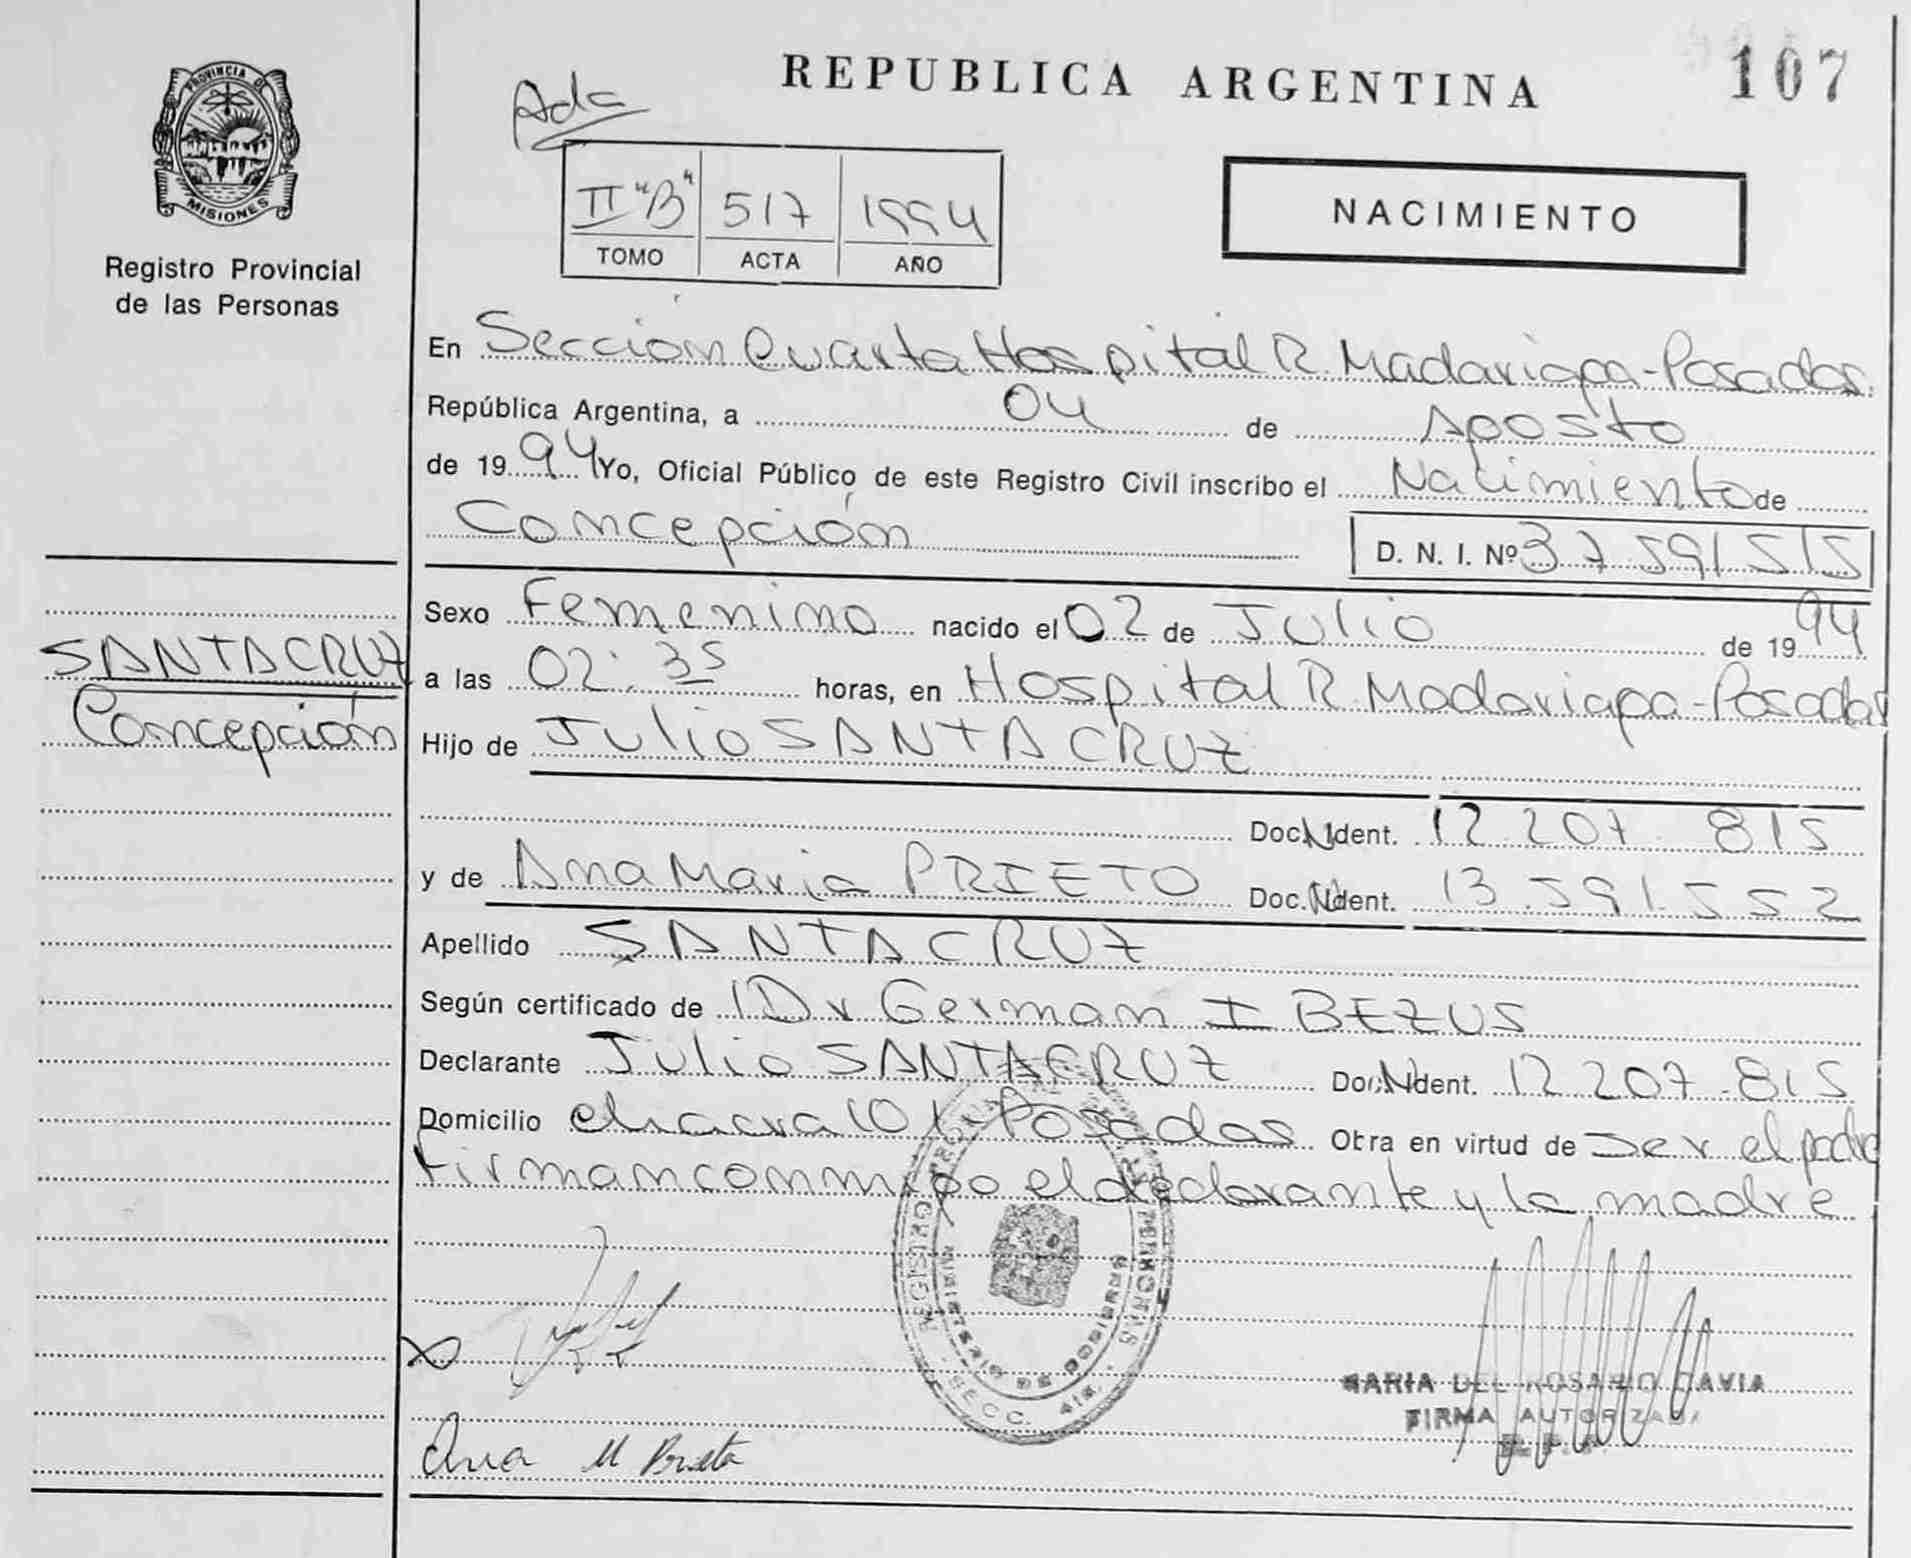 REPUBLICA ARGENTINA
107
PROVINCIA DE
MISIONES
Registro Provincial
de las Personas
Ada
II "B" 517 1994
TOMO ACTA AÑO
NACIMIENTO
En Sección Cuarta Hospital R. Madariaga - Posadas.
República Argentina, a 04 de Agosto
de 1994 Yo, Oficial Público de este Registro Civil inscribo el Nacimiento de
Concepción
D. N. I. Nº 37 591 515
SANTACRUZ
Concepción
Sexo Femenino nacido el 02 de Julio de 1994
a las 02:35 horas, en Hospital R. Madariaga - Posadas
Hijo de Julio SANTACRUZ
Doc. N Ident. 12.207.815
y de Ana Maria PRIETO Doc. N Ident. 13.591.552
Apellido SANTACRUZ
Según certificado de Dr German I BEZUS
Declarante Julio SANTACRUZ Doc. N Ident. 12.207.815
Domicilio chacra 101 - Posadas Obra en virtud de Ser el padre
Firman conmigo el declarante y la madre
MINISTERIO DE GOBIERNO
SECC. 4ta.
MARIA DEL ROSARIO DAVIA
FIRMA AUTORIZADA
Ana M Prieto